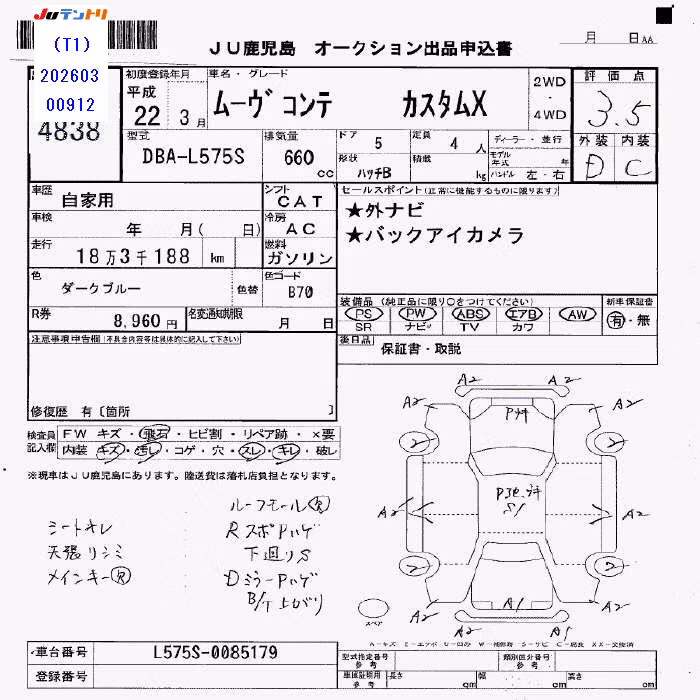 JUテントリ
(T1)
202603
00912
4838
JU鹿児島 オークション出品申込書
月 日 AA
初度登録年月
平成
22年 3月
車名・グレード
ムーヴ コンテ カスタムX
2WD
・
4WD
評価点
3.5
外装 内装
D C
型式
DBA-L575S
排気量
660 cc
ドア 5
形状 ハッチB
定員 4 人
積載 kg
ディーラー・並行
モデル年式 年
ハンドル 左・右
車歴 自家用
シフト CAT
車検 年 月( 日)
冷房 AC
走行 18万3千188 km
燃料 ガソリン
色 ダークブルー 色替
色コード B70
R券 8,960円
名変通知期限 月 日
セールスポイント(正常に機能するものに限ります)
★外ナビ
★バックアイカメラ
装備品 (純正品に限り○をつけてください)
PS PW ABS エアB AW
SR ナビ TV カワ
新車保証書
有・無
後日品 保証書・取説
注意事項申告欄(不具合内容等は具体的に記入して下さい)
修復歴 有〔箇所 〕
検査員記入欄
FW キズ・飛石・ヒビ割・リペア跡・×要
内装 キズ・汚レ・コゲ・穴・スレ・キレ・破レ
※現車はJU鹿児島にあります。陸送費は落札店負担となります。
シートキレ
天張リシミ
メインキー欠
ルーフモール欠
RスポPハゲ
下廻りS
DミラーPハゲ
B/T上がり
A2 A2
A2 A2
P井
2 2
A2 A2
S1
2 2
A2 A1 A2
A2 A2
スペア
A-キズ E-エクボ U-凹み W-補修跡 S-サビ C-腐食 XX-交換済
車台番号 L575S-0085179
登録番号
型式指定番号 参考
類別区分番号 参考
車庫証明用 参考 長さ cm 幅 cm 高さ cm